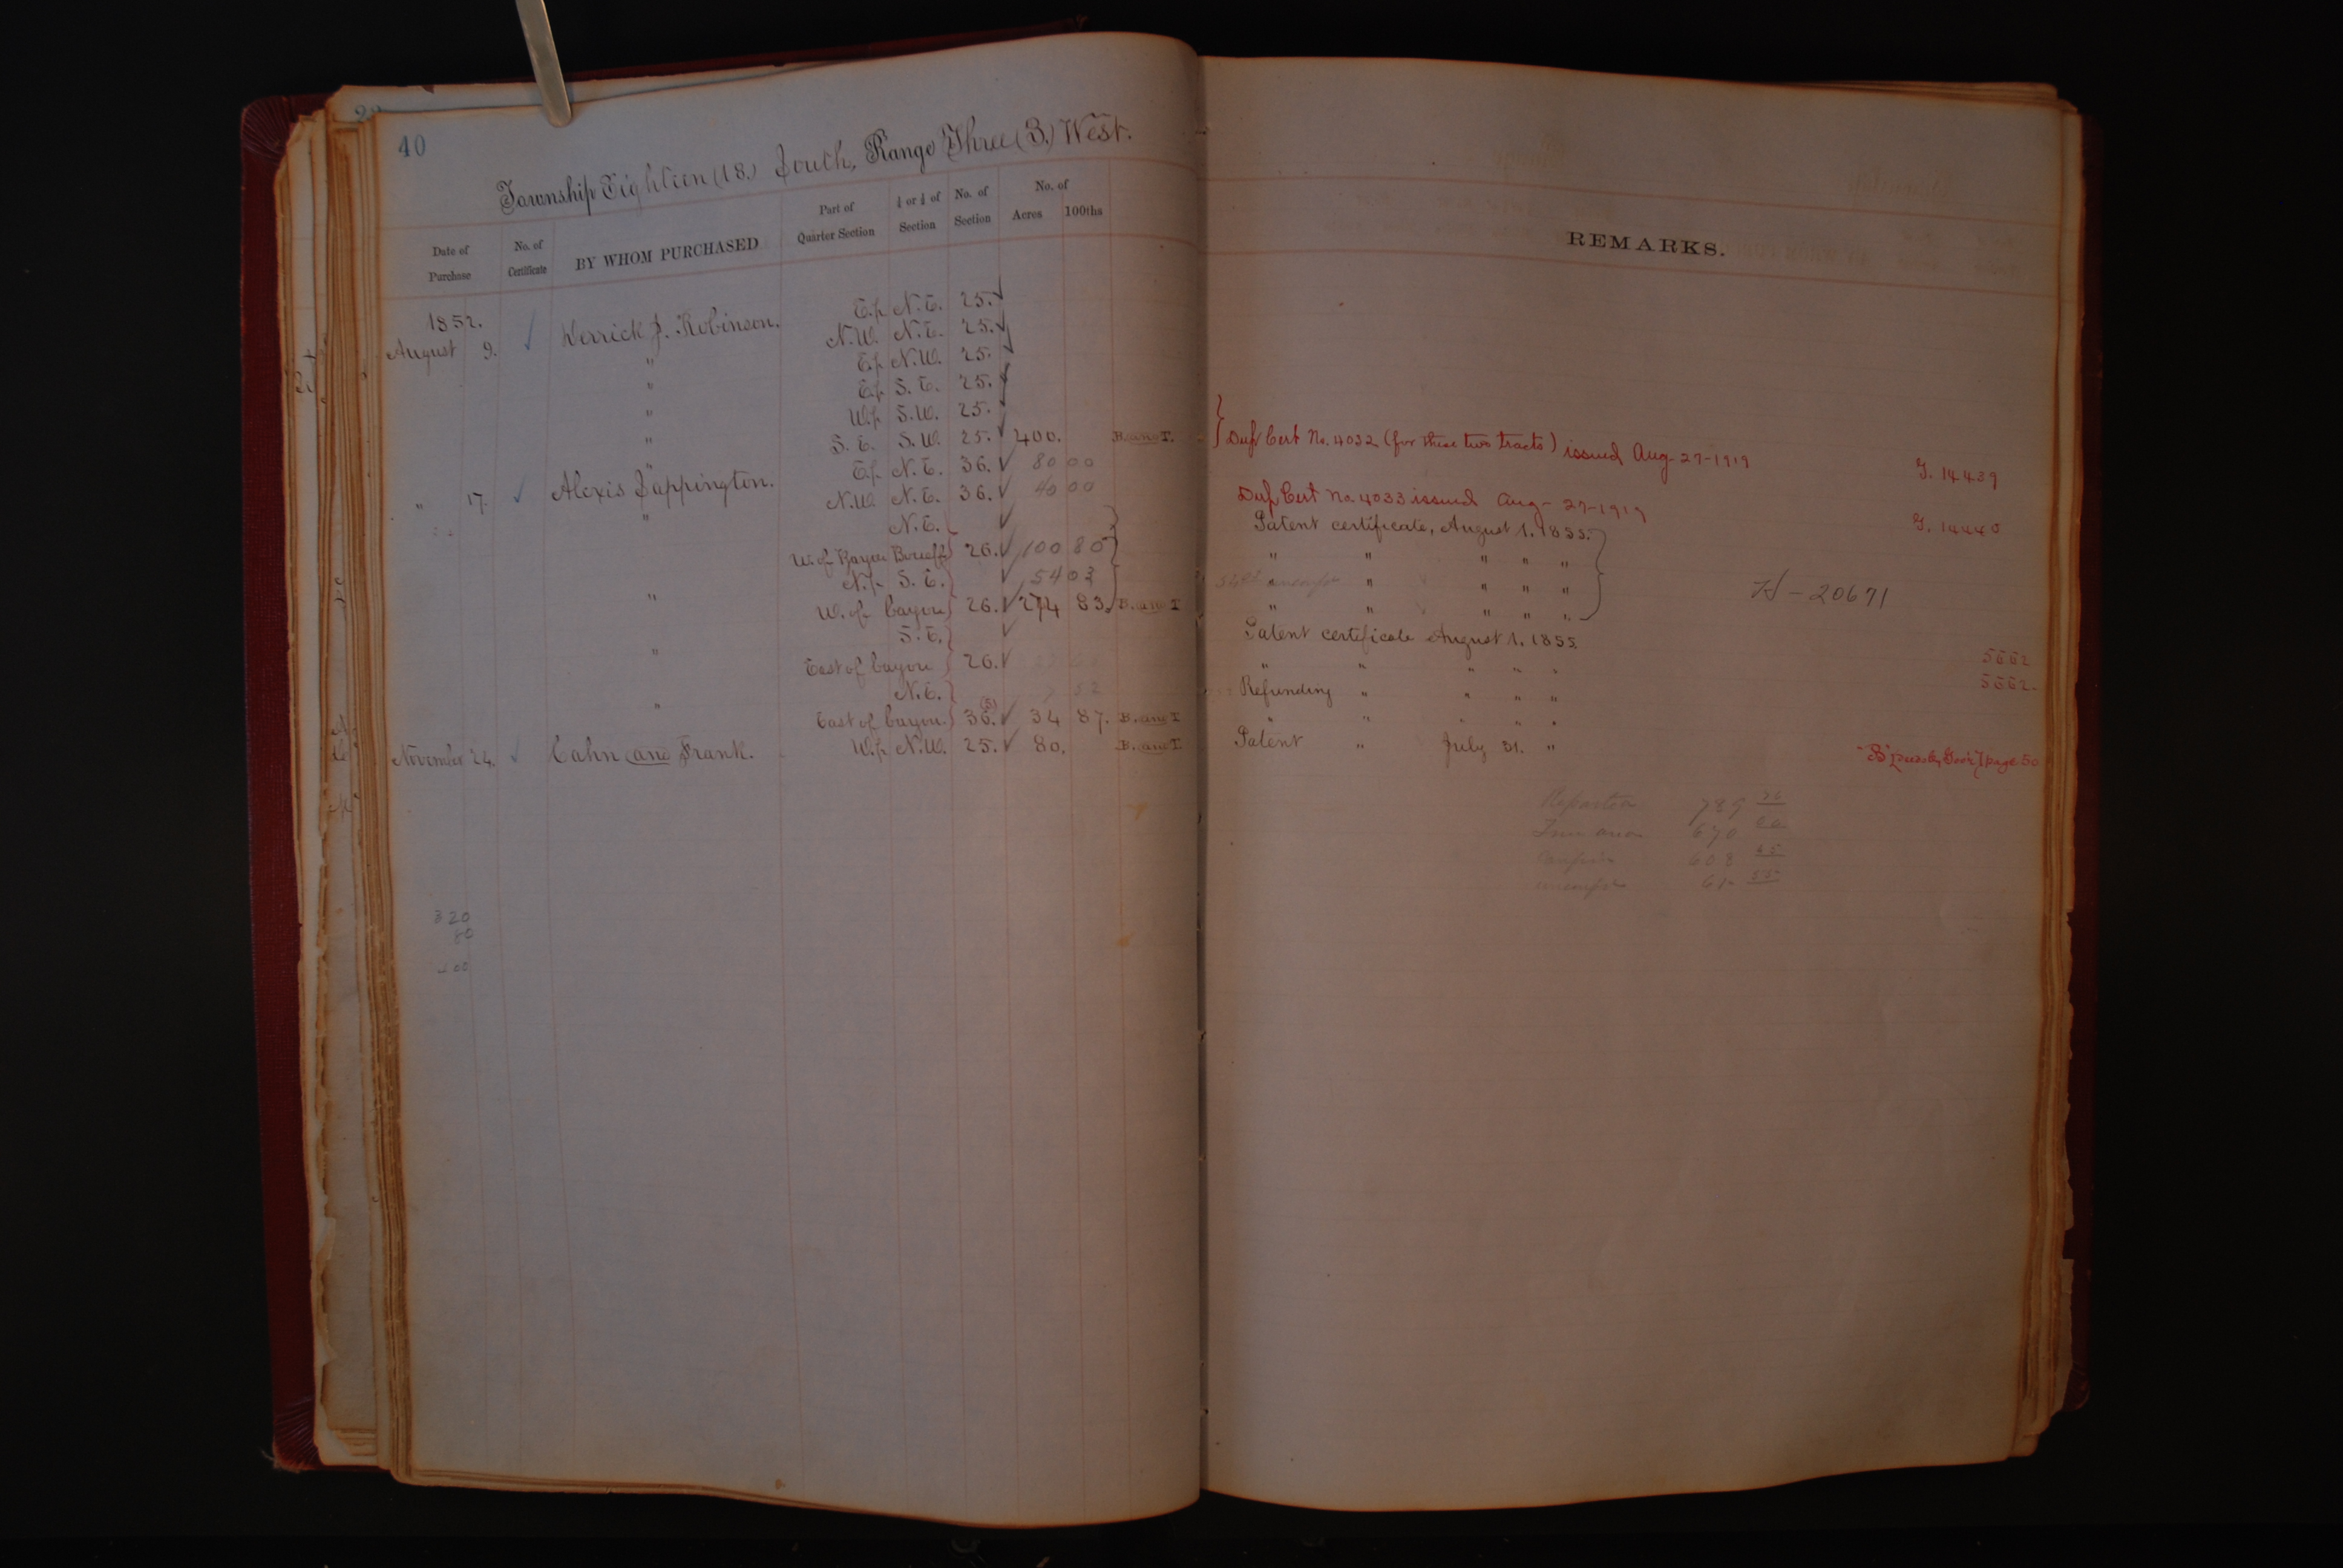 40
Township Eighteen (18.) South, Range Three (3.) West.
Date of Purchase
No. of Certificate
BY WHOM PURCHASED
Part of Quarter Section
½ or ¼ of Section
No. of Section
No. of
Acres 100ths
REMARKS.
1852.
August 9. Robinson. E.½ N.E. 25.
" N.W. N.E. 25.
" E.½ N.W. 25.
" E.½ S.E. 25.
" W.½ S.W. 25.
" S.E. S.W. 25. 400. B. and T.
" 17. Alexis Sappington. E.½ N.E. 36. 80 00 Dup Cert No. 4032 (for these two tracts) issued Aug-27-1919 G. 14439
" N.W. N.E. 36. 40 00 Dup Cert No. 4033 issued Aug-27-1919 G. 14440
N.E. Patent certificate, August 1. 1855.
W. of Bayou Boeuff 26. 100 80 " " " " "
N.½ S.E. 54 03 " " " "
" W. of bayou 26. 274 83. B. and T " " " " "
H-20671
S.E. Patent certificate August 1. 1855.
" East of bayou 26. " " " " " 5662
N.E. Refunding " " " " 5662.
" East of bayou. 36. (S) 34 87. B. and T " " " " "
November 24. Cahn and Frank. W.½ N.W. 25. 80. B. and T Patent " July 31. " page 50
789 76
670 00
608 45
61 55
320
80
400